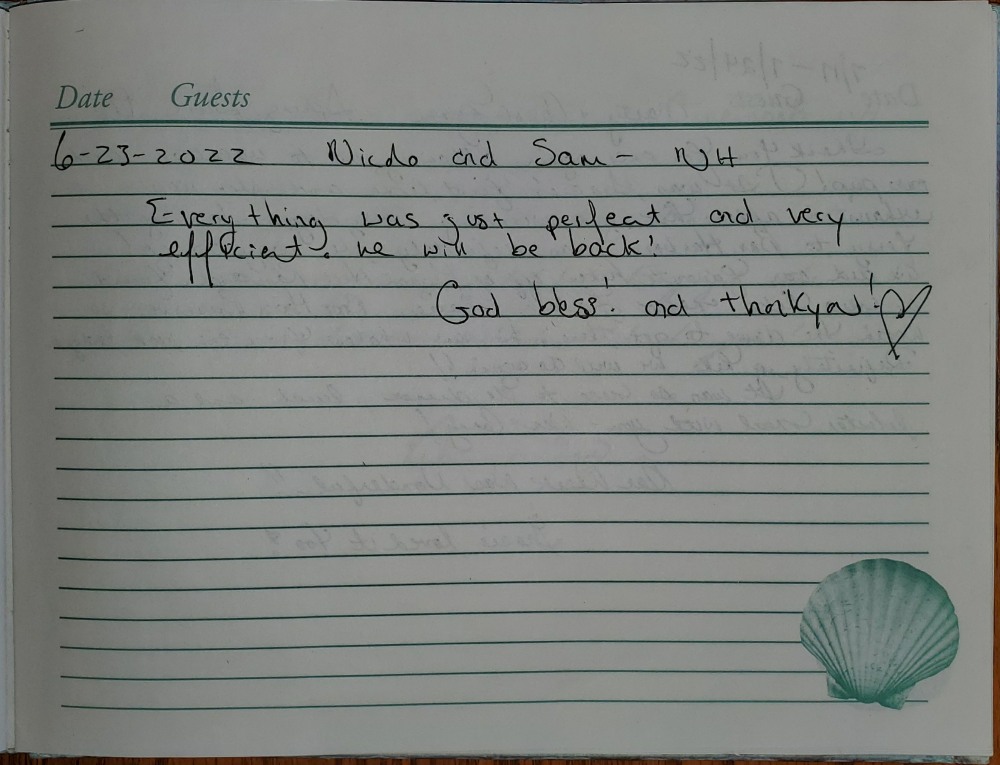 Date Guests
6-23-2022 Nicole and Sam - NH
Everything was just perfect and very
efficient. we will be back!
God bless! and thankyou!